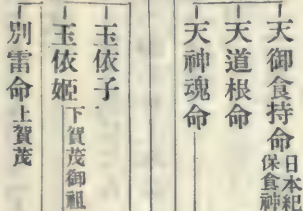 天御食持命日本紀
保食神
天道根命
天神魂命
玉依子
玉依姬下賀茂御祖
別雷命上賀茂